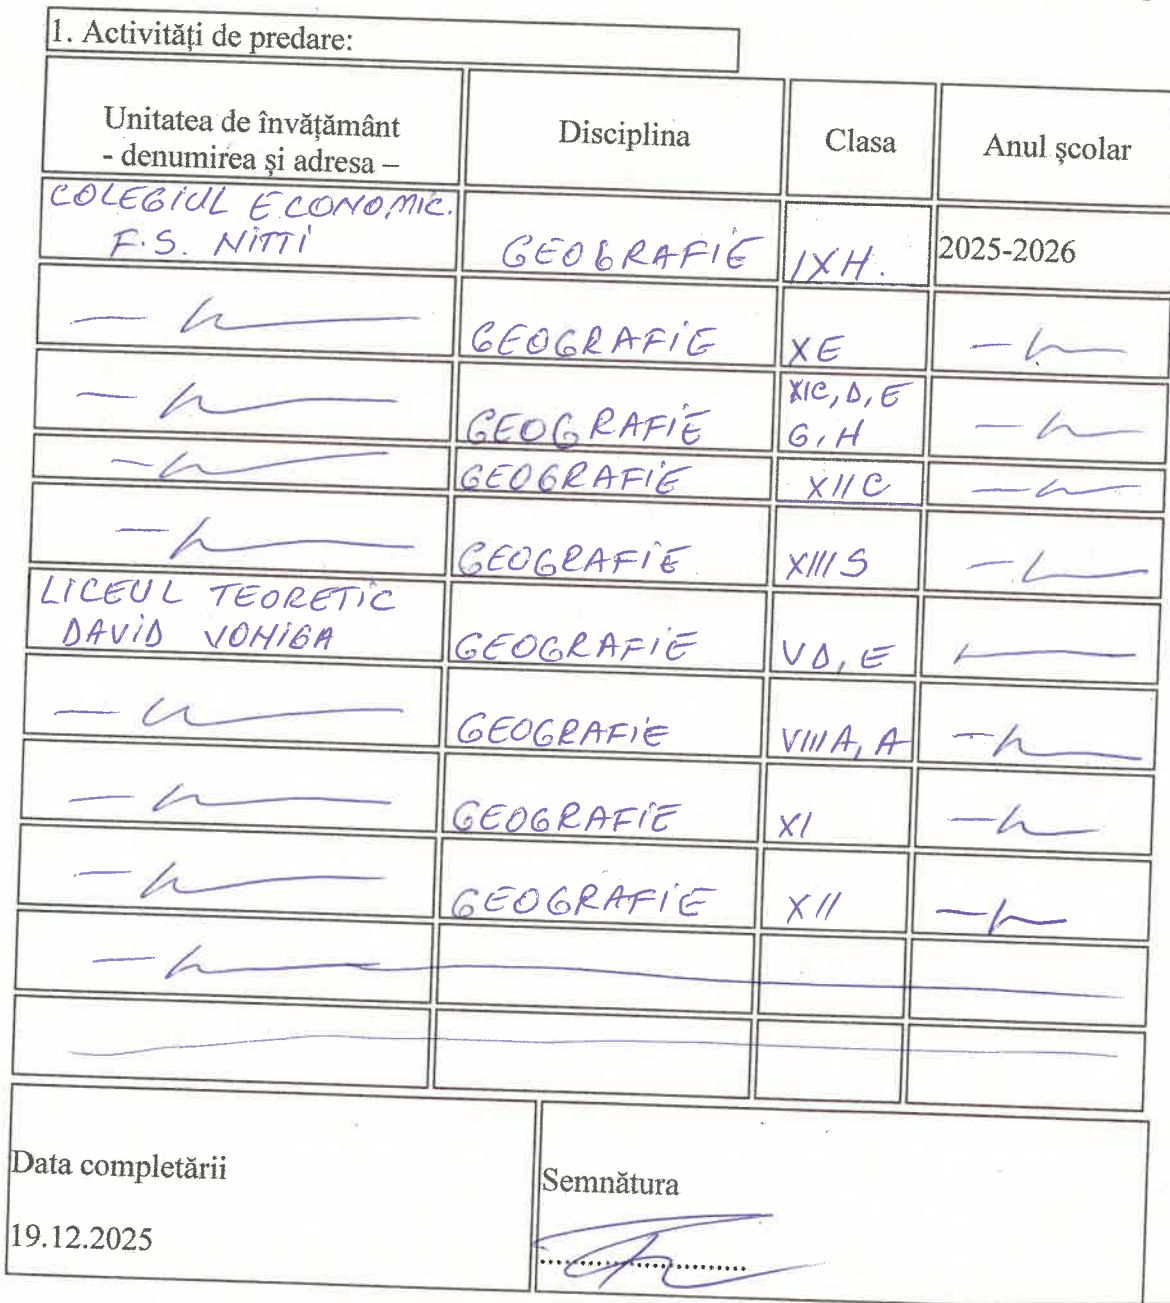 1. Activități de predare:
Unitatea de învățământ
- denumirea și adresa –
Disciplina
Clasa
Anul școlar
COLEGIUL ECONOMIC.
F.S. NiTTi
GEOGRAFiE
IXH.
2025-2026
GEOGRAFiE
XE
GEOGRAFiE
XIC, D, E
G, H
GEOGRAFiE
XIIC
GEOGRAFiE
XIIIS
LICEUL TEORETiC
DAViD VONiGA
GEOGRAFiE
VD, E
GEOGRAFiE
VIIIA, A
GEOGRAFiE
XI
GEOGRAFiE
XII
Data completării
19.12.2025
Semnătura